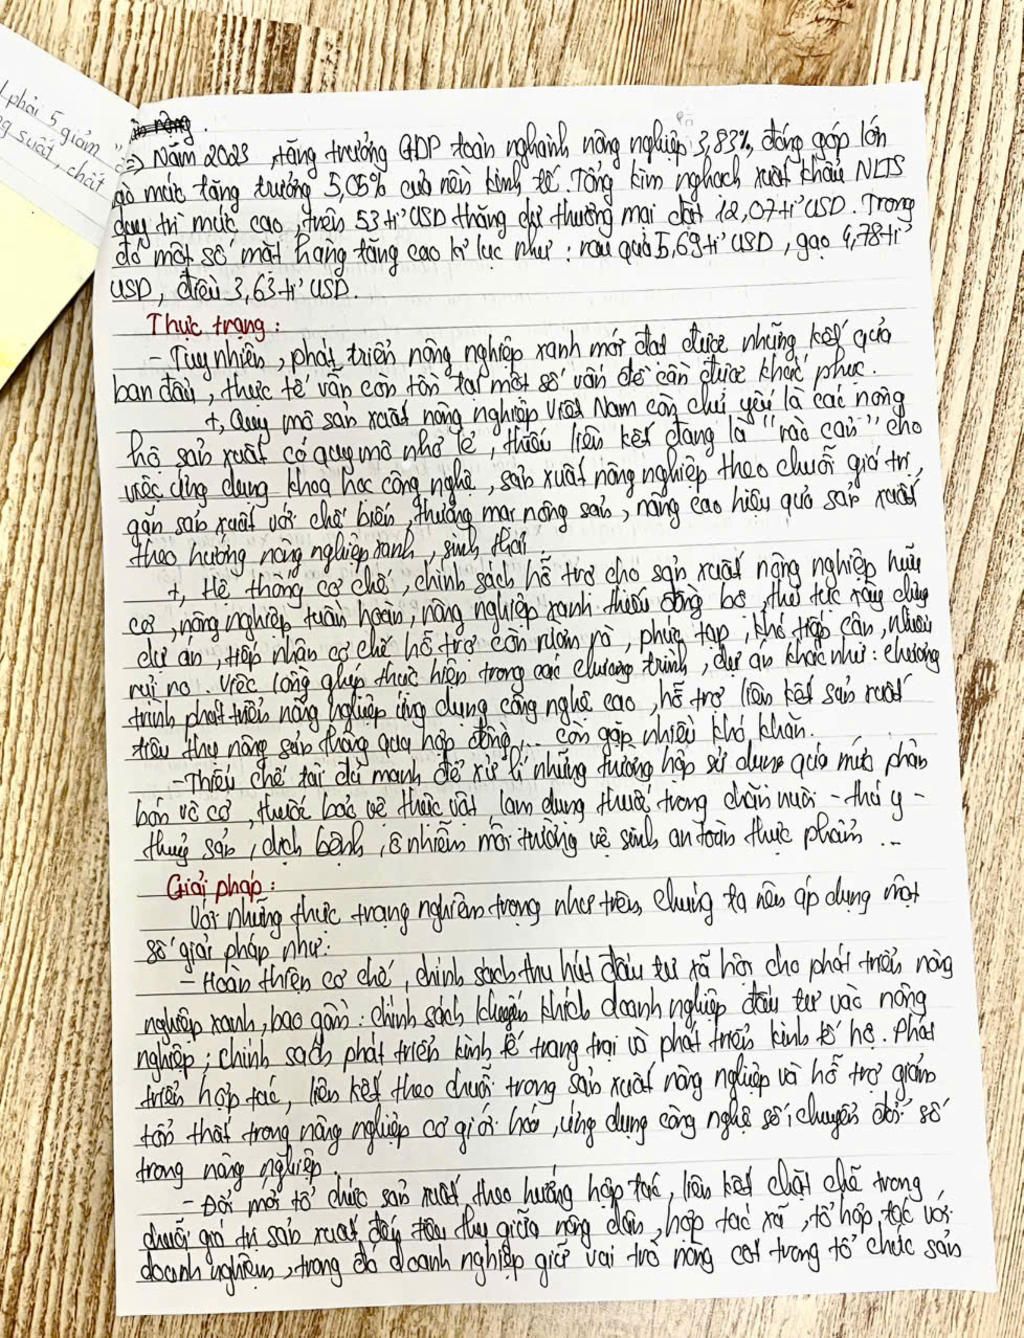 L phải 5 giảm
g suất, chất
=> Năm 2023, tăng trưởng GDP toàn nghành nông nghiệp 3,83%, đóng góp lớn
mức tăng trưởng 5,05% của nền kinh tế. Tổng kim nghạch xuất khẩu NLTS
duy trì mức cao, trên 53 tỉ USD thặng dư thương mại đạt 12,07 tỉ USD. Trong
đó một số mặt hàng tăng cao kỉ lục như: rau quả 5,69 tỉ USD, gạo 4,78 tỉ
USD, điều 3,63 tỉ USD.
Thực trạng:
- Tuy nhiên, phát triển nông nghiệp xanh mới đạt được những kết quả
ban đầu, thực tế vẫn còn tồn tại một số vấn đề cần được khắc phục.
+, Quy mô sản xuất nông nghiệp Việt Nam còn chủ yếu là các nông
hộ sản xuất có quy mô nhỏ lẻ, thiếu liên kết đang là "rào cản" cho
việc ứng dụng khoa học công nghệ, sản xuất nông nghiệp theo chuỗi giá trị,
gắn sản xuất với chế biến, thương mại nông sản, nâng cao hiệu quả sản xuất
theo hướng nông nghiệp xanh, sinh thái.
+, Hệ thống cơ chế, chính sách hỗ trợ cho sản xuất nông nghiệp hữu
cơ, nông nghiệp tuần hoàn, nông nghiệp xanh thiếu đồng bộ, thủ tục xây dựng
dự án, tiếp nhận cơ chế hỗ trợ còn rườm rà, phức tạp, khó tiếp cận, nhiều
rủi ro. Việc lồng ghép thực hiện trong các chương trình, dự án khác như: chương
trình phát triển nông nghiệp ứng dụng công nghệ cao, hỗ trợ liên kết sản xuất
tiêu thụ nông sản thông qua hợp đồng,... còn gặp nhiều khó khăn.
- Thiếu chế tài đủ mạnh để xử lí những trường hợp sử dụng quá mức phân
bón vô cơ, thuốc bảo vệ thực vật, lạm dụng thuốc trong chăn nuôi - thú y -
thuỷ sản, dịch bệnh, ô nhiễm môi trường vệ sinh an toàn thực phẩm ...
Giải pháp:
Với những thực trạng nghiêm trọng như trên, chúng ta nên áp dụng một
số giải pháp như:
- Hoàn thiện cơ chế, chính sách thu hút đầu tư xã hội cho phát triển nông
nghiệp xanh, bao gồm: chính sách khuyến khích doanh nghiệp đầu tư vào nông
nghiệp; chính sách phát triển kinh tế trang trại và phát triển kinh tế hộ. Phát
triển hợp tác, liên kết theo chuỗi trong sản xuất nông nghiệp và hỗ trợ giảm
tổn thất trong nông nghiệp cơ giới hoá, ứng dụng công nghệ số, chuyển đổi số
trong nông nghiệp.
- Đổi mới tổ chức sản xuất theo hướng hợp tác, liên kết chặt chẽ trong
chuỗi giá trị sản xuất đến tiêu thụ giữa nông dân, hợp tác xã, tổ hợp tác với
doanh nghiệm, trong đó doanh nghiệp giữ vai trò nòng cốt trong tổ chức sản